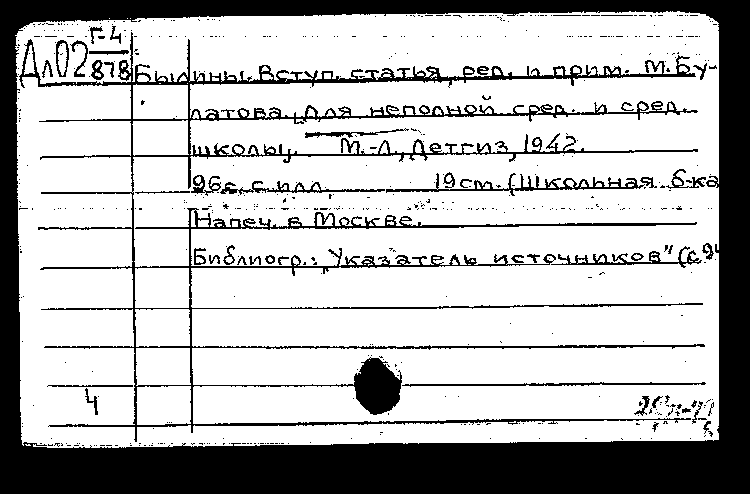 Г-4
Дл02 878
Былины. Вступ. статья, ред. и прим. М. Бу-
латова. Для неполной сред. и сред.
школы. М.-Л., Детгиз, 1942.
96с. с илл. 19см. (Школьная б-ка
Напеч. в Москве.
Библиогр.: "Указатель источников" (с 94
4